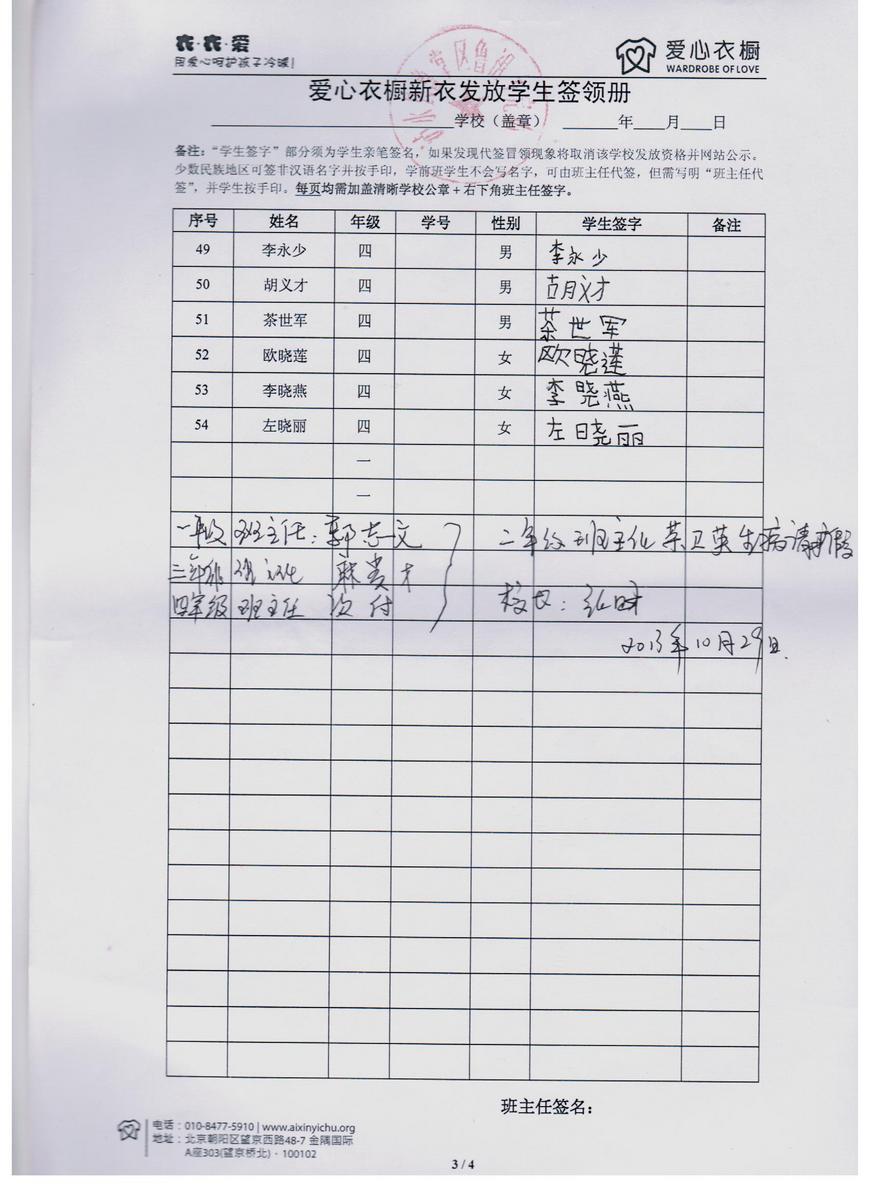 衣·衣·爱
用爱心呵护孩子冷暖!
爱心衣橱
WARDROBE OF LOVE
爱心衣橱新衣发放学生签领册
学校（盖章） 年 月 日
备注：“学生签字”部分须为学生亲笔签名，如果发现代签冒领现象将取消该学校发放资格并网站公示。
少数民族地区可签非汉语名字并按手印，学前班学生不会写名字，可由班主任代签，但需写明“班主任代
签”，并学生按手印。每页均需加盖清晰学校公章+右下角班主任签字。
序号 姓名 年级 学号 性别 学生签字 备注
49 李永少 四 男 李永少
50 胡义才 四 男 胡义才
51 茶世军 四 男 茶世军
52 欧晓莲 四 女 欧晓莲
53 李晓燕 四 女 李晓燕
54 左晓丽 四 女 左晓丽
一
一
一年级 班主任：郭志文 二年级班主任 茶卫英生病请假
三年级 班主任
四年级 班主任 校长：
2013年10月29日.
班主任签名：
电话：010-8477-5910 | www.aixinyichu.org
地址：北京朝阳区望京西路48-7 金隅国际
A座303(望京桥北)·100102
3 / 4